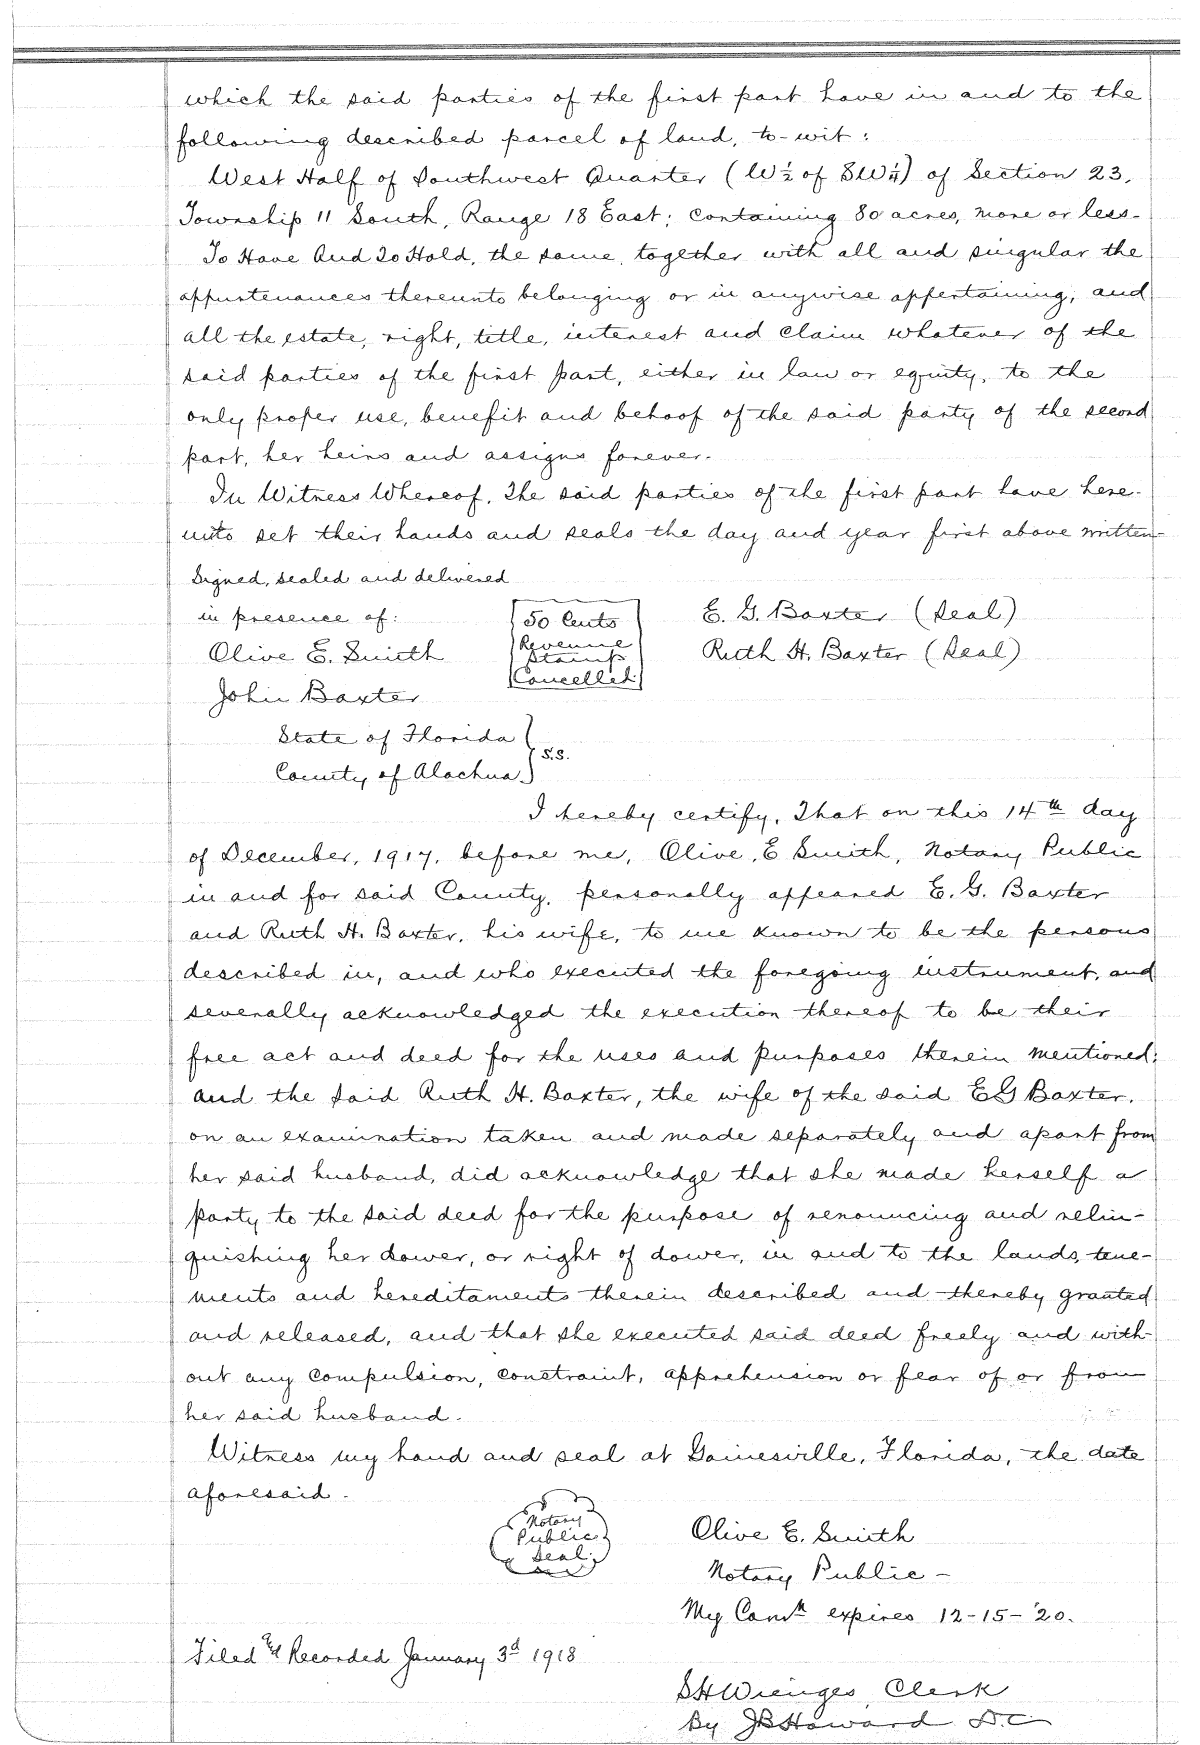 which the said parties of the first part have in and to the
following described parcel of land, to-wit:
West Half of Southwest Quarter (W½ of SW¼) of Section 23,
Township 11 South, Range 18 East; containing 80 acres, more or less-
To Have And To Hold, the same, together with all and singular the
appurtenances thereunto belonging or in anywise appertaining, and
all the estate, right, title, interest and claim whatever of the
said parties of the first part, either in law or equity, to the
only proper use, benefit and behoof of the said party of the second
part, her heirs and assigns forever.
In Witness Whereof, The said parties of the first part have here-
unto set their hands and seals the day and year first above written-
Signed, sealed and delivered
in presence of:
Olive E. Smith
John Baxter
50 Cents
Revenue
Stamp
Cancelled
E. G. Baxter (Seal)
Ruth H. Baxter (Seal)
State of Florida
County of Alachua
S.S.
I hereby certify, That on this 14th day
of December, 1917, before me, Olive, E Smith, Notary Public
in and for said County, personally appeared E. G. Baxter
and Ruth H. Baxter, his wife, to me known to be the persons
described in, and who executed the foregoing instrument, and
severally acknowledged the execution thereof to be their
free act and deed for the uses and purposes therein mentioned;
and the said Ruth H. Baxter, the wife of the said E G Baxter,
on an examination taken and made separately and apart from
her said husband, did acknowledge that she made herself a
party to the said deed for the purpose of renouncing and relin-
quishing her dower, or right of dower, in and to the lands, tene-
ments and hereditaments therein described and thereby granted
and released, and that she executed said deed freely and with-
out any compulsion, constraint, apprehension or fear of or from
her said husband.
Witness my hand and seal at Gainesville, Florida, the date
aforesaid.
Notary
Public
Seal
Olive E. Smith
Notary Public-
My Comn expires 12-15-'20.
Filed & Recorded January 3d 1918
S H Wienges, Clerk
By J B Howard D.C